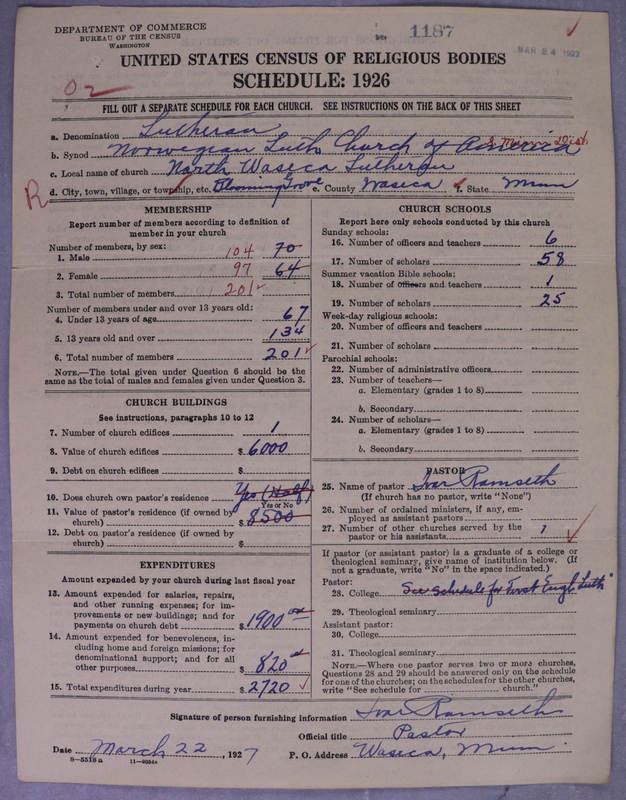 DEPARTMENT OF COMMERCE
BUREAU OF THE CENSUS
WASHINGTON
1187
MAR 24 1927
UNITED STATES CENSUS OF RELIGIOUS BODIES
SCHEDULE: 1926
FILL OUT A SEPARATE SCHEDULE FOR EACH CHURCH. SEE INSTRUCTIONS ON THE BACK OF THIS SHEET
a. Denomination Lutheran
b. Synod Norwegian Luth Church of America
c. Local name of church North Waseca Lutheran
R d. City, town, village, or township, etc. Blooming Grove e. County Waseca f. State Minn
MEMBERSHIP
Report number of members according to definition of
member in your church
Number of members, by sex:
1. Male 104 70
2. Female 97 64
3. Total number of members 201
Number of members under and over 13 years old:
4. Under 13 years of age 67
5. 13 years old and over 134
6. Total number of members 201
NOTE.—The total given under Question 6 should be the
same as the total of males and females given under Question 3.
CHURCH BUILDINGS
See instructions, paragraphs 10 to 12
7. Number of church edifices 1
8. Value of church edifices $ 6000
9. Debt on church edifices $
10. Does church own pastor's residence Yes (Half)
Yes or No
11. Value of pastor's residence (if owned by
church) $ 8500
12. Debt on pastor's residence (if owned by
church) $
EXPENDITURES
Amount expended by your church during last fiscal year
13. Amount expended for salaries, repairs,
and other running expenses; for im-
provements or new buildings; and for
payments on church debt $ 1900
14. Amount expended for benevolences, in-
cluding home and foreign missions; for
denominational support; and for all
other purposes $ 820
15. Total expenditures during year $ 2720
CHURCH SCHOOLS
Report here only schools conducted by this church
Sunday schools:
16. Number of officers and teachers 6
17. Number of scholars 58
Summer vacation Bible schools:
18. Number of officers and teachers 1
19. Number of scholars 25
Week-day religious schools:
20. Number of officers and teachers
21. Number of scholars
Parochial schools:
22. Number of administrative officers
23. Number of teachers—
a. Elementary (grades 1 to 8)
b. Secondary
24. Number of scholars—
a. Elementary (grades 1 to 8)
b. Secondary
PASTOR
25. Name of pastor Ivar Ramseth
(If church has no pastor, write "None")
26. Number of ordained ministers, if any, em-
ployed as assistant pastors
27. Number of other churches served by the
pastor or his assistants 1
If pastor (or assistant pastor) is a graduate of a college or
theological seminary, give name of institution below. (If
not a graduate, write "No" in the space indicated.)
Pastor:
28. College See Schedule for First Engl. Luth"
29. Theological seminary
Assistant pastor:
30. College
31. Theological seminary
NOTE.—Where one pastor serves two or more churches,
Questions 28 and 29 should be answered only on the schedule
for one of the churches; on the schedules for the other churches,
write "See schedule for church."
Signature of person furnishing information Ivar Ramseth
Official title Pastor
Date March 22, 1927 P. O. Address Waseca, Minn.
8—5318 a